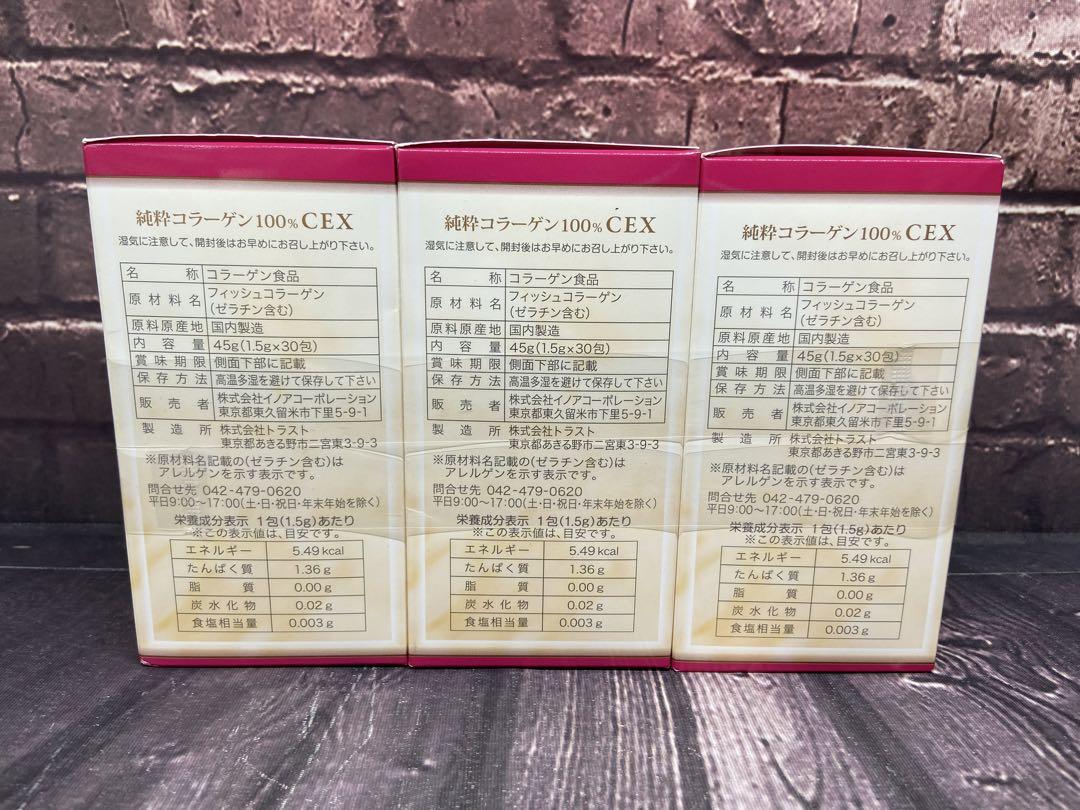 純粋コラーゲン100% CEX
湿気に注意して、開封後はお早めにお召し上がり下さい。
名称 コラーゲン食品
原材料名 フィッシュコラーゲン
(ゼラチン含む)
原料原産地 国内製造
内容量 45g(1.5g×30包)
賞味期限 側面下部に記載
保存方法 高温多湿を避けて保存して下さい
販売者 株式会社イノアコーポレーション
東京都東久留米市下里5-9-1
製造所 株式会社トラスト
東京都あきる野市二宮東3-9-3
※原材料名記載の(ゼラチン含む)は
アレルゲンを示す表示です。
問合せ先 042-479-0620
平日9:00~17:00(土・日・祝日・年末年始を除く)
栄養成分表示 1包(1.5g)あたり
※この表示値は、目安です。
エネルギー 5.49kcal
たんぱく質 1.36g
脂質 0.00g
炭水化物 0.02g
食塩相当量 0.003g
純粋コラーゲン100% CEX
湿気に注意して、開封後はお早めにお召し上がり下さい。
名称 コラーゲン食品
原材料名 フィッシュコラーゲン
(ゼラチン含む)
原料原産地 国内製造
内容量 45g(1.5g×30包)
賞味期限 側面下部に記載
保存方法 高温多湿を避けて保存して下さい
販売者 株式会社イノアコーポレーション
東京都東久留米市下里5-9-1
製造所 株式会社トラスト
東京都あきる野市二宮東3-9-3
※原材料名記載の(ゼラチン含む)は
アレルゲンを示す表示です。
問合せ先 042-479-0620
平日9:00~17:00(土・日・祝日・年末年始を除く)
栄養成分表示 1包(1.5g)あたり
※この表示値は、目安です。
エネルギー 5.49kcal
たんぱく質 1.36g
脂質 0.00g
炭水化物 0.02g
食塩相当量 0.003g
純粋コラーゲン100% CEX
湿気に注意して、開封後はお早めにお召し上がり下さい。
名称 コラーゲン食品
原材料名 フィッシュコラーゲン
(ゼラチン含む)
原料原産地 国内製造
内容量 45g(1.5g×30包)
賞味期限 側面下部に記載
保存方法 高温多湿を避けて保存して下さい
販売者 株式会社イノアコーポレーション
東京都東久留米市下里5-9-1
製造所 株式会社トラスト
東京都あきる野市二宮東3-9-3
※原材料名記載の(ゼラチン含む)は
アレルゲンを示す表示です。
問合せ先 042-479-0620
平日9:00~17:00(土・日・祝日・年末年始を除く)
栄養成分表示 1包(1.5g)あたり
※この表示値は、目安です。
エネルギー 5.49kcal
たんぱく質 1.36g
脂質 0.00g
炭水化物 0.02g
食塩相当量 0.003g